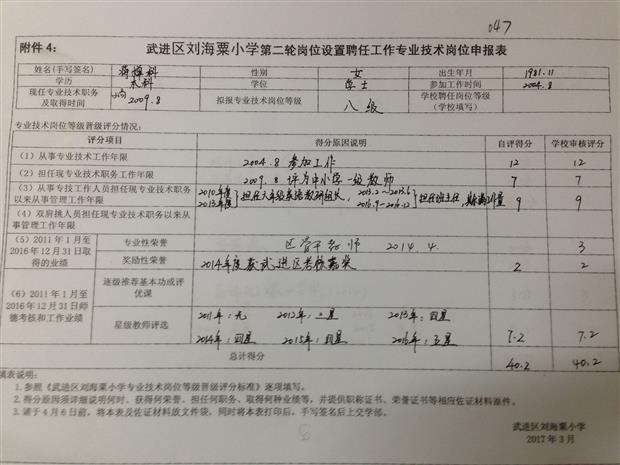 047
附件4： 武进区刘海粟小学第二轮岗位设置聘任工作专业技术岗位申报表
姓名(手写签名) 性别 女 出生年月 1981.11
学历 本科 学位 学士 参加工作时间 2004.8
现任专业技术职务及取得时间 2009.8 拟报专业技术岗位等级 八级 学校聘任岗位等级（学校填写）
专业技术岗位等级晋级评分情况：
评分项目 得分原因说明 自评得分 学校审核评分
（1）从事专业技术工作年限 2004.8 参加工作 12 12
（2）担任现专业技术职务工作年限 2009.8 评为中小学一级教师 7 7
（3）从事专技工作人员担任现专业技术职务以来从事管理工作年限 2010年度 2013年度 担任六年级英语教研组长， 2013.2－2013.6 2013.9－2016.12 担任班主任， 9 9
（4）双肩挑人员担任现专业技术职务以来从事管理工作年限
（5）2011年1月至2016年12月31日取得的业绩 专业性荣誉 区骨干教师 2014.4. 3
奖励性荣誉 2014年度获武进区考核嘉奖 2 2
（6）2011年1月至2016年12月31日师德考核和工作业绩 逐级推荐基本功或评优课
星级教师评选 2011年：无 2012年：二星 2013年：四星
2014年：四星 2015年：四星 2016年：五星 7.2 7.2
总计得分 40.2 40.2
填表说明：
1.参照《武进区刘海粟小学专业技术岗位等级晋级评分标准》逐项填写。
2.得分原因须详细说明何时、获得何荣誉、担任何职务、取得何种业绩等，并提供职称证书、荣誉证书等相应佐证材料原件。
3.请于4月6日前，将本表及佐证材料放文件袋，同时将本表打印后，手写签名后上交学部。
武进区刘海粟小学
2017年3月